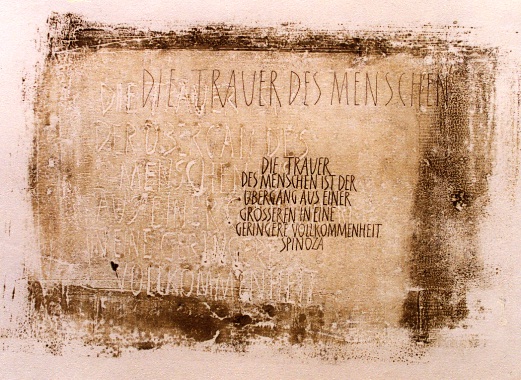 DIE TRAUER DES MENSCHEN
DIE
DER DES
MENSCHEN
AUS EINER
VOLLKOMMENHEIT
DIE TRAUER
DES MENSCHEN IST DER
ÜBERGANG AUS EINER
GRÖSSEREN IN EINE
GERINGERE VOLLKOMMENHEIT
SPINOZA